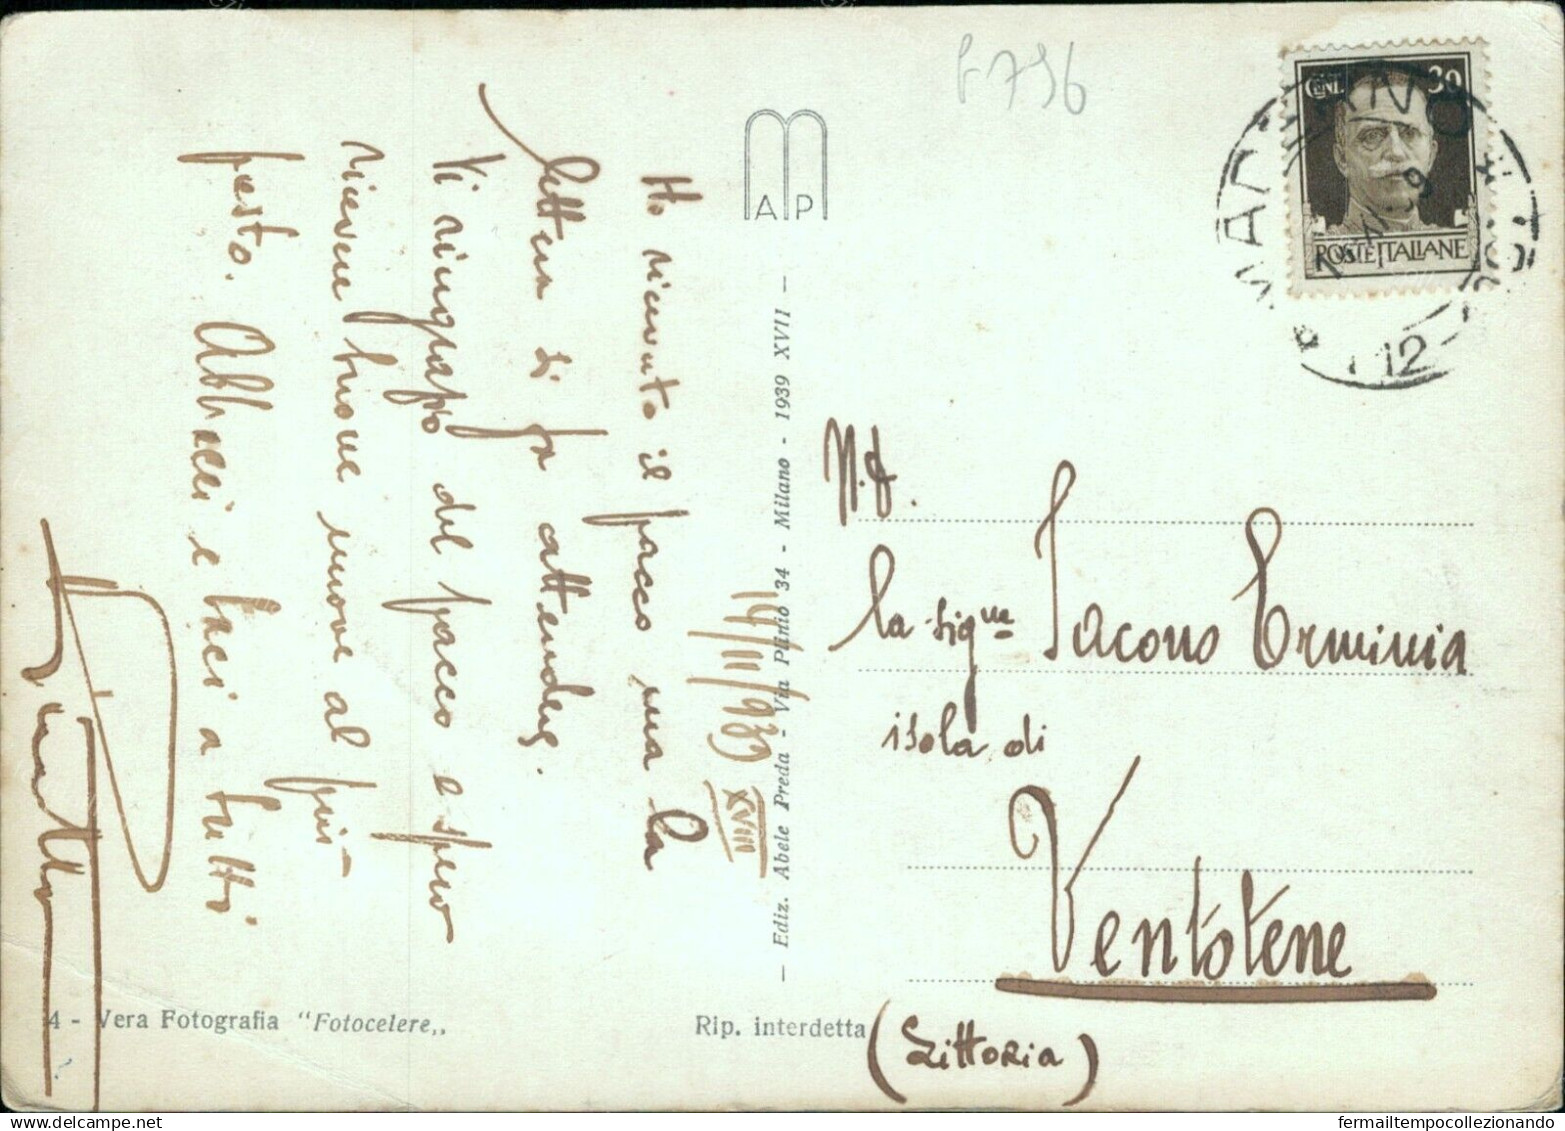 F 796
CENT. 30
POSTE ITALIANE
12
MAP
Ho ricevuto il pacco ma la
lettera si fa attendere.
Vi ringrazio del pacco e spero
ricevere buone nuove al più
presto. Abbracci e baci a tutti
14/III/939
XVIII
— Ediz. Abele Preda - Via Plinio 34 - Milano - 1939 XVII —
N.D.
la sig.ra Iacono Erminia
isola di
Ventotene
(Littoria)
4 - Vera Fotografia "Fotocelere„
Rip. interdetta
fermailtempocollezionando